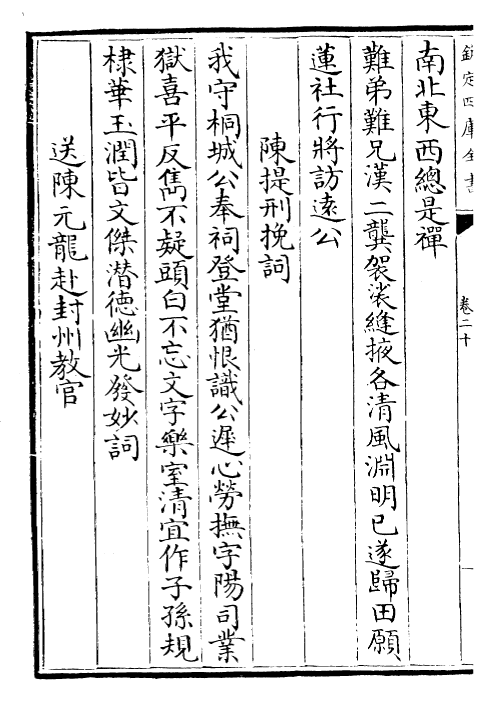 欽定四庫全書
卷二十
南北東西總是禪
難弟難兄漢二龔袈裟縫掖各清風淵明已遂歸田願
蓮社行將訪遠公
陳提刑挽詞
我守桐城公奉祠登堂猶恨識公遲心勞撫字陽司業
獄喜平反雋不疑頭白不忘文字樂室清宜作子孫規
棣華玉潤皆文傑潛德幽光發妙詞
送陳元龍赴封州教官